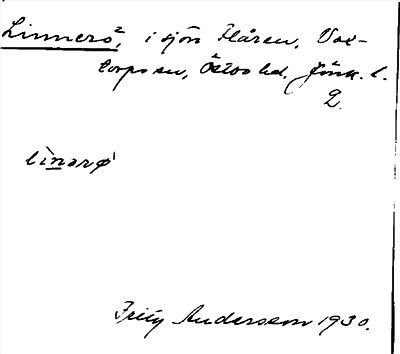 Linnerö², i sjön Flåren, Vox-
torps sn, Östbo hd, Jönk. l.
2.
li̇̀nərø'
Fritz Andersson 1930.